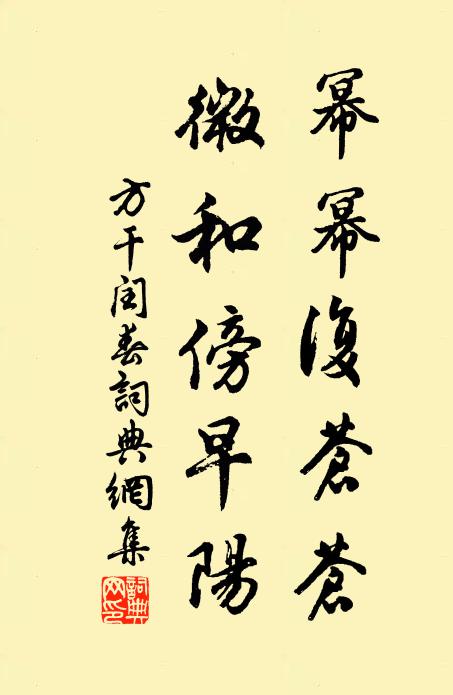 冪冪復蒼蒼
微和傍早陽
方干閏春詞典網集
詞典
网印